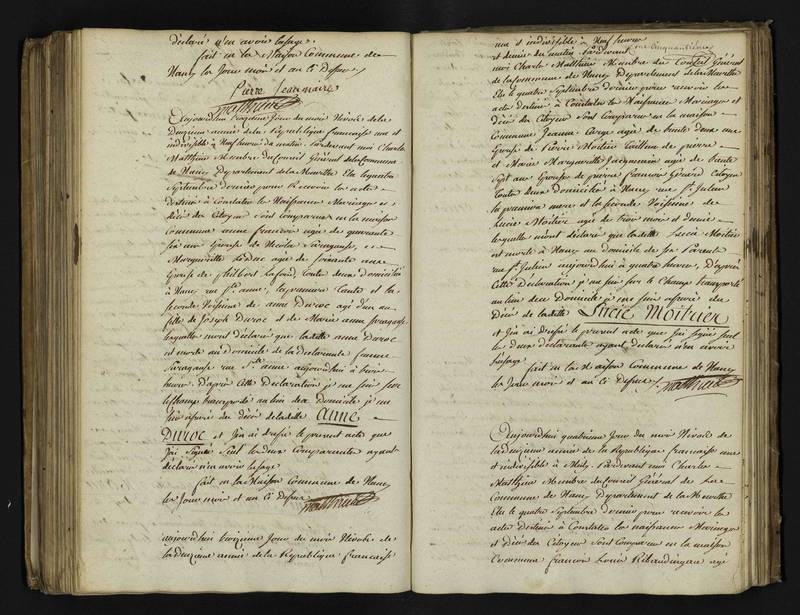 déclaré n'en avoir l'usage.
fait en la Maison Commune de
Nancy les Jour mois et an Ci Dessus
Pierre Jeanmaire
Matthieu
Aujourdhui troizieme Jour du mois Nivose de la
Deuzieme année de la République francaise une et
indivisible à Neuf heures du matin. Pardevant moi Charles
Matthieu Membre du Conseil Général de la Commune
de Nancy Departement de la Meurthe Elu le quatre
Septembre dernier pour Recevoir les actes
destinés à Constater les Naissances Mariages et
décès des Citoyens Sont Comparues en la maison
Commune anne francois agée de quarante
six ans Epouse de Nicolas et
Margueritte agée de soixante ans
Epouse de Philbert toutes deux domiciliées
à Nancy rue Ste anne, la premiere tante et la
seconde Voisine de anne Duroc agé d'un an
fille de Joseph Duroc et de Marie anne
lesquelles mont déclaré que ladite anne Duroc
est morte au domicile de la déclarante femme
rue Ste anne aujourdhui à trois
heures. D'après Cette Déclaration je me suis sur
lechamp transporté au lieu dece Domicile je me
suis assuré du décès de ladette Anne
Duroc et J'en ai dressé le present acte que
J'ai Signé Seul les deux Comparantes ayant
déclaré n'en avoir l'usage
fait en la Maison Commune de Nancy
les Jour mois et an Ci Dessus
Matthieu
aujourdhui troizieme Jour du mois Nivose de
la deuzieme année de la République francaise
une et indivisible à Neuf heures
et demie du matin Pardevant
moi Charles Matthieu Membre du Conseil Général
de la Commune de Nancy Departement de la Meurthe
Elu le quatre Septembre dernier pour recevoir les
actes destinés à Constater les Naissances Mariages et
décès des Citoyens Sont Comparues en la maison
Commune Jeanne agée de trente deux ans
Epouse de Pierre Moitrier tailleur de pierre
et Marie Margueritte Jacquemin agée de trente
sept ans Epouse de pierre francois Gérard Citoyen
toutes deux Domiciliées à Nancy rue St Julien
la premiere mere et la seconde Voisine de
Lucie Moitrier agée de trois mois et demie
lesquelles mont déclaré que ladette Lucie Moitrier
est morte à Nancy au domicile de ses Parents
rue St Julien aujourdhui à quatre heures, D'après
Cette Déclaration je me suis sur le Champ transporté
au lieu dece Domicile je me suis assuré du
Décès de ladette Lucie Moitrier
et J'en ai dressé le present acte que J'ai signé seul
les deux déclarantes ayant déclaré n'en avoir
l'usage
fait en la Maison Commune de Nancy
les Jour mois et an Ci Dessus
Matthieu
Aujourdhui quatrieme Jour du mois Nivose de
la deuzieme année de la République francaise une
et indivisible à Midy Pardevant moi Charles
Matthieu Membre du Conseil Général de la
Commune de Nancy Departement de la Meurthe
Elu le quatre Septembre dernier pour recevoir les
actes destinés à Constater les naissances Mariages
et Décès des Citoyens Sont Comparus en la maison
Commune francois Louis agé